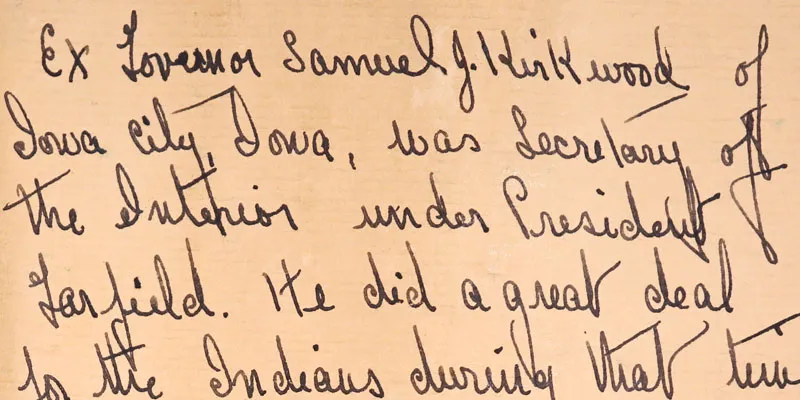 Ex Governor Samuel J. Kirkwood of
Iowa City, Iowa, was Secretary of
the Interior under President
Garfield. He did a great deal
for the Indians during that